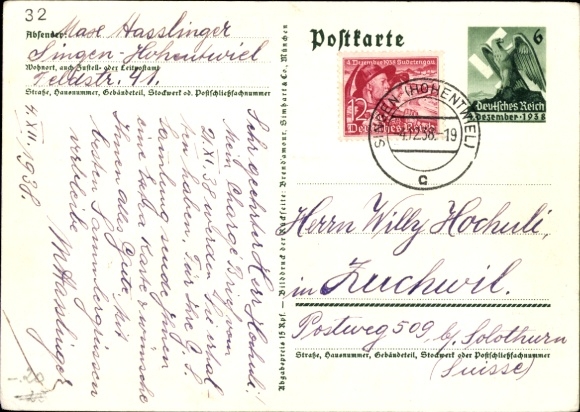 32
Absender: Maxe Hasslinger
Singen-Hohentwiel
Wohnort, auch Zustell- oder Leitpostamt
Feldstr. 41.
Straße, Hausnummer, Gebäudeteil, Stockwerk od. Postschließfachnummer
4. XII. 1938.
Sehr geehrter Herr Hochuli!
Mein Chargé Brief vom
21. XI. 38 werden Sie erhal-
ten haben. Für Ihre
Sendung sende Ihnen
Karte wünsche
Ihnen alles Gute. Mit
besten Sammlergrüssen
verbleibe
M Hasslinger
Abgabepreis 15 Rpf. – Bilddruck der Rückseite: Brend'amour, Simhart & Co., München
Postkarte
4. Dezember 1938 Sudetengau
12
Deutsches Reich
6
Deutsches Reich
4. Dezember · 1938
SINGEN (HOHENTWIEL)
4.12.38.-19
c
Herrn Willy Hochuli,
in Zuchwil.
Postweg 509, b/ Solothurn
Straße, Hausnummer, Gebäudeteil, Stockwerk oder Postschließfachnummer
(Suisse)
-.20